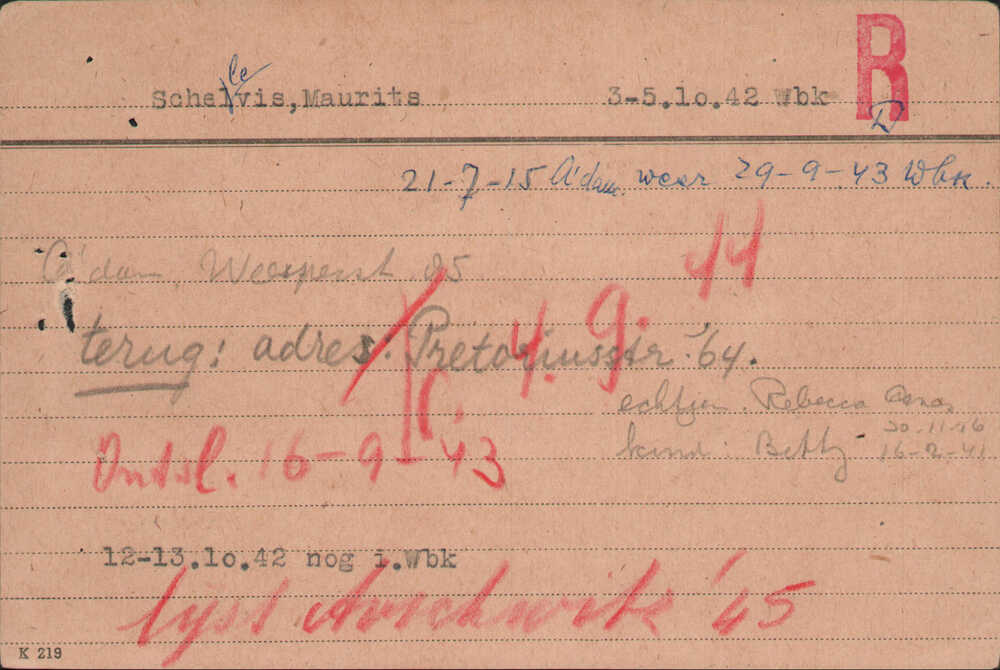 le
Schelvis, Maurits 3-5.1o.42 Wbk R
D
21-7-15 A'dam. weer 29-9-43 Wbk.
A'dam Weesperst 85
44
terug: adres: Pretoriusstr. '64.
4. 9.
echtgen. Rebecca
kind: Betty 16-2-41
Ontsl. 16-9-43
12-13.1o.42 nog i.Wbk
lijst Auschwitz '45
K 219